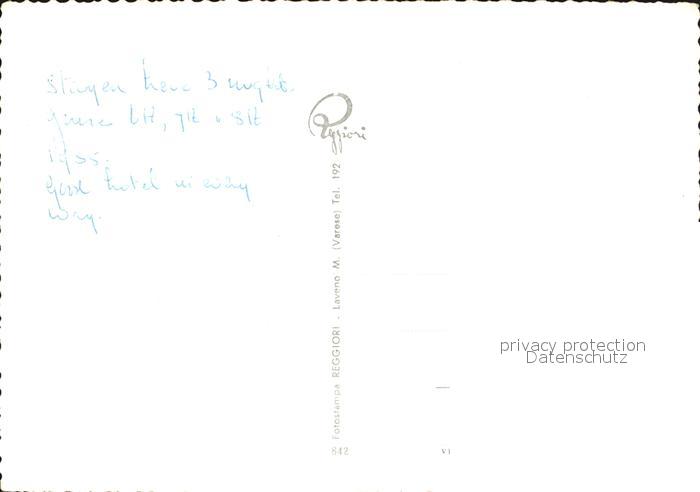 Stayed here 3 nights.
June 6th, 7th & 8th
1955.
Good hotel in every
way.
Reggiori
Fotostampa REGGIORI - Laveno M. (Varese) Tel. 192
842
VI
privacy protection
Datenschutz